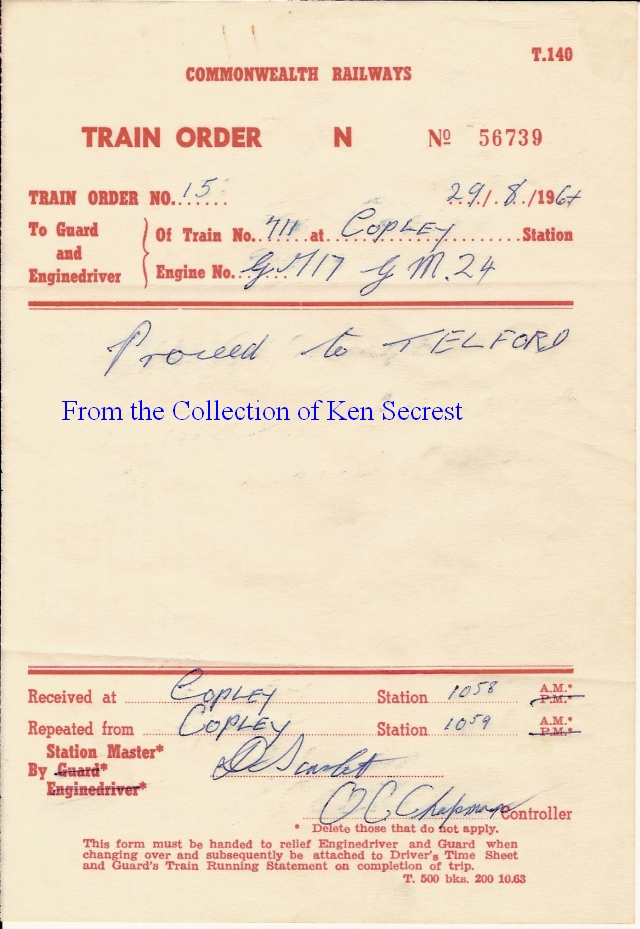 T.140
COMMONWEALTH RAILWAYS
TRAIN ORDER N Nº 56739
TRAIN ORDER NO. 15 29/8/1964
To Guard and Enginedriver
Of Train No. 711 at COPLEY Station
Engine No. GM17 GM.24
Proceed to TELFORD
From the Collection of Ken Secrest
Received at COPLEY Station 1058 A.M.* P.M.*
Repeated from COPLEY Station 1059 A.M.* P.M.*
Station Master*
By Guard*
Enginedriver*
Scarlett
O C Chapman Controller
* Delete those that do not apply.
This form must be handed to relief Enginedriver and Guard when
changing over and subsequently be attached to Driver's Time Sheet
and Guard's Train Running Statement on completion of trip.
T. 500 bks. 200 10.63